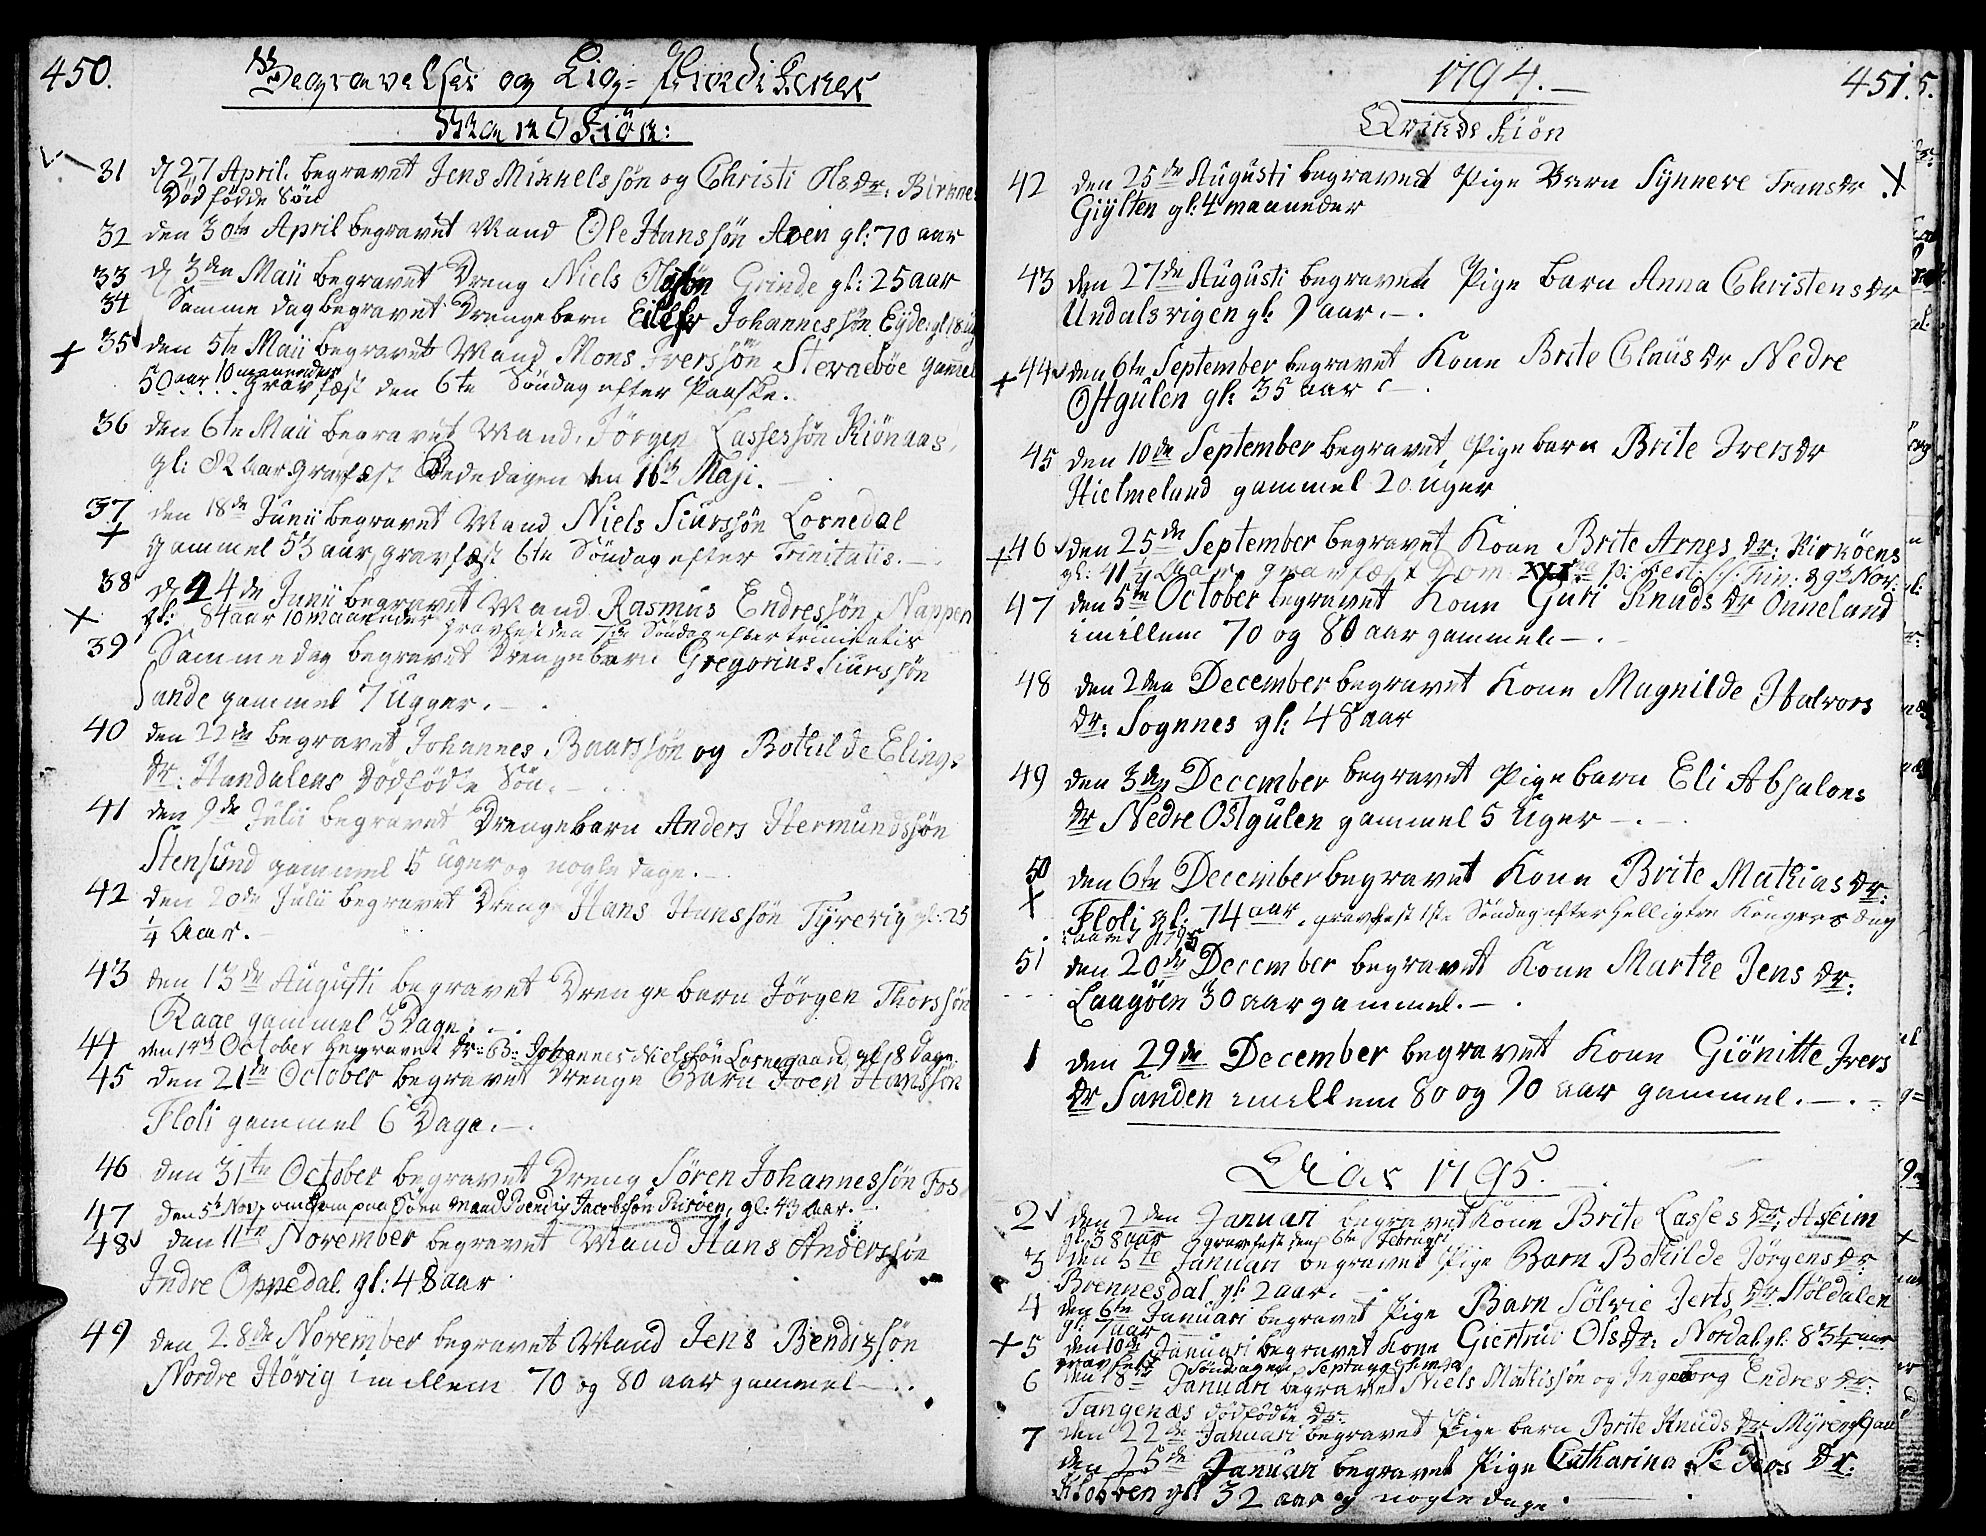 450.
Begravelser og Lig-Prædikener
Mand Kiön:
31 d 27 April. begravet Jens Mikkelssön og Christi Olsdr: Birknes
Död födde Sön
32 den 30te April begravet Mand Ole Hanssön Aven gl: 70 aar
33 d 3den Maii begravet Dreng Niels Olssön Grinde gl: 25 aar
34 Samme dag begravet Drengebarn Johannessön Eyde gl 18
+ 35 den 5te Maii begravet Mand Mons Iverssön Stevneböe gammel
50 aar 10 maaneder gravfæst den 6te Söndag efter Paaske.
36 den 6te Maii begravet Mand Jörgen Lassessön Kiönaas,
gl: 82 Aar Gravfæst Bededagen den 16de Maji.
37 den 18de Junii begravet Mand Niels Siurssön Losnedal
+ gammel 53 aar, gravfæst 6te Söndag efter Trinitatis.
38 d 24de Junii begravet Mand Rasmus Endressön Nappen
+ gl: 84 aar 10 maaneder gravfest den 7de Söndag efter trinitatis
39 Samme dag begravet Drengebarn Gregorius Siurssön
Sande gammel 7 Ugger.
40 den 22de begravet Johannes Baarssön og Bothilde Elings
dr: Handalens Dödfödte Sön.
41 den 9de Julii begravet Drengebarn Anders Hermundssön
Stensund gammel 15 Uger og nogle dage.
42 den 20de Julii begravet Dreng Hans Hanssön Tyrevig gl: 25
1/4 Aar.
43 den 13de Augusti begravet Drengebarn Jörgen Thorssön
Raae gammel 3 Dage.
44 den 14de October begravet Dr: B: Johannes Nielssön Losnegaard gl 18 Dage.
45 den 21de October begravet Drenge Barn Joen Hanssön
Floli gammel 6 Dage.
46 den 31te October begravet Dreng Sören Johannessön Fos
47 den 5te Nov: omkom paa Söen Mand Bendix Jacobssön Risöen, gl: 43 Aar.
48 den 11te November begravet Mand Hans Anderssön
Indre Oppedal gl: 48 aar
49 den 28de November begravet Mand Jens Bendixsön
Nordre Hövig imellem 70 og 80 aar gammel
1794. 451. 5.
Qvinde Kiön
42 den 25de Augusti begravet Pige Barn Synneve Fransdr X
Giylten gl: 4 maaneder
43 den 27de Augusti begravet Pige barn Anna Christensdr
Undalsvigen gl: 9 aar.
+ 44 den 6te September begravet Kone Brite Clausdr Nedre
Ostgulen gl: 35 aar
45 den 10de September begravet, Pige barn Brite Iversdr
Hielmeland gammel 20 uger
+ 46 den 25de September begravet Kone Brite Arnes dr: Kirköens
gl: 41 1/4 Aar, gravfæst Dom: XXI p: fest: S: Trin: d 9de Nov:
47 den 5te October begravet Kone Guri Knudsdr Onneland
imellem 70 og 80 aar gammel.
48 den 2den December begravet Kone Magnilde Halvors
dr: Sognnes gl: 48 aar
49 den 3de December begravet Pige barn Eli Absalons
dr Nedre Ostgulen gammel 5 Uger
50 den 6te December begravet Kone Brite Mathias dr:
+ Floli gl: 74 aar, gravfest 1ste Söndag efter Helligtre Kongers dag
i aaret 1795
51 den 20de December begravet Kone Marthe Jens dr:
Laagöen 30 aar gammel.
1 den 29de December begravet Kone Giönitte Ivers
dr Sanden imellem 80 og 90 aar gammel.
1795.
2 den 2den Januari begravet Kone Brite Lasses dr: Aseim
gl: 38 aar gravfest den 6te Februari
3 den 5te Januari begravet Pige Barn Bothilde Jörgensdr:
Brennesdal gl: 2 aar.
4 den 6te Januari begravet Pige Barn Sölvie Jertsdr: Stöldalen
gl: 7 aar
+ 5 den 10de Januari begravet Kone Giertrud Olsdr: Nordal gl: 83 1/4 aar
gravfest Söndagen Septuagesima
6 den 18de Januari begravet Niels Mattissön og Ingeborg Endresdr:
Tangenæs dödfödte dr:
7 den 22de Januari begravet Pige barn Brite Knudsdr: Myren
den 25de Januari begravet Pige Catharina Peders dr:
Klobben gl: 32 aar og nogle dage.